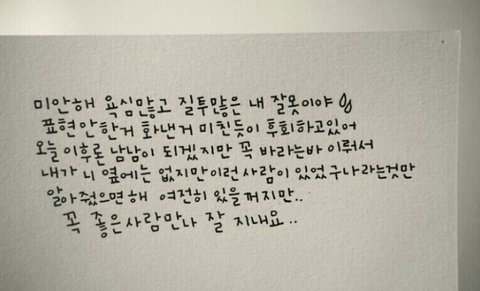 미안해 욕심많고 질투많은 내 잘못이야
표현안한거 화낸거 미친듯이 후회하고있어
오늘 이후론 남남이 되겠지만 꼭 바라는바 이뤄서
내가 니 옆에는 없지만이런 사람이 있었구나라는것만
알아줬으면해 여전히 있을꺼지만..
꼭 좋은사람만나 잘 지내요..